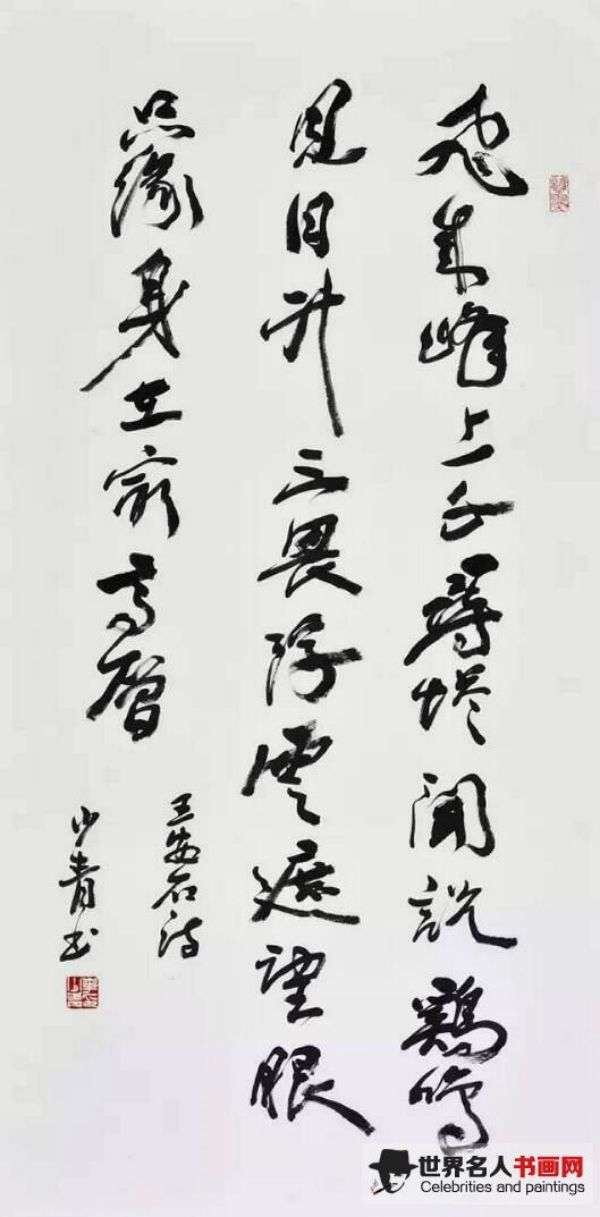 飛来峰上千尋塔聞説鷄鳴
見日升不畏浮雲遮望眼
只緣身在最高層
王安石詩
少青书
世界名人书画网
Celebrities and paintings